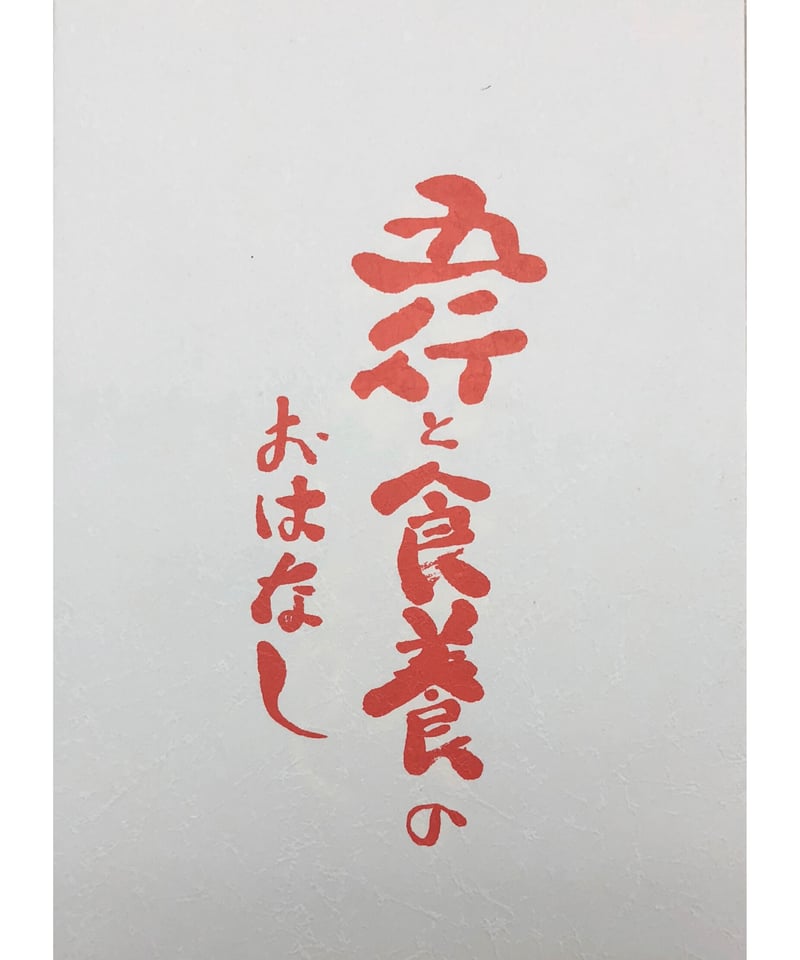 五行と食養の
おはなし